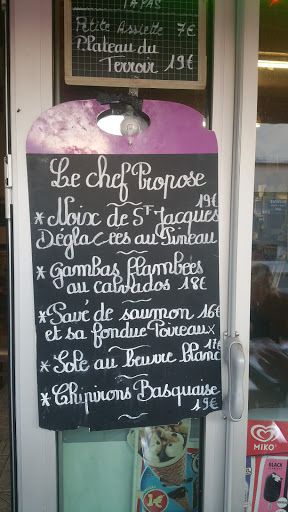 TAPAS
Petite Assiette 7€
Plateau du
Terroir 19€
Le chef Propose
19€
* Noix de St Jacques
Déglacées au Pineau
* Gambas flambées
au calvados 18€
* Pavé de saumon 16€
et sa fondue Poireaux
17€
* Sole au beurre blanc
* Chipirons Basquaise
19€
MIKO
BLACK
1€